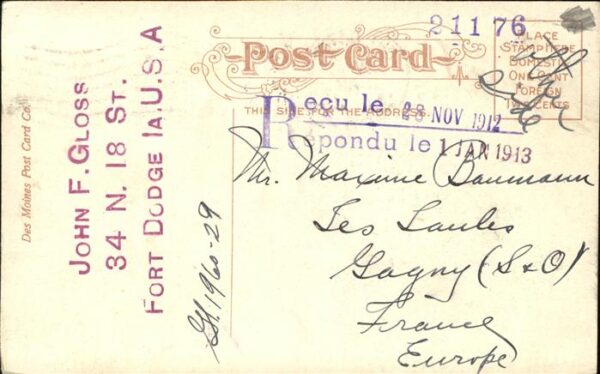 21176
Post Card
PLACE
STAMP HERE
DOMESTIC
ONE CENT
FOREIGN
TWO CENTS
THIS SIDE FOR THE ADDRESS.
Reçu le 28 NOV 1912
Répondu le 1 JAN 1913
Mr. Maxime Baumann
Les Saules
Gagny (S & O)
France
Europe
Des Moines Post Card Co.
JOHN F. GLOSS
34 N. 18 ST.
FORT DODGE IA. U.S.A
1960-29